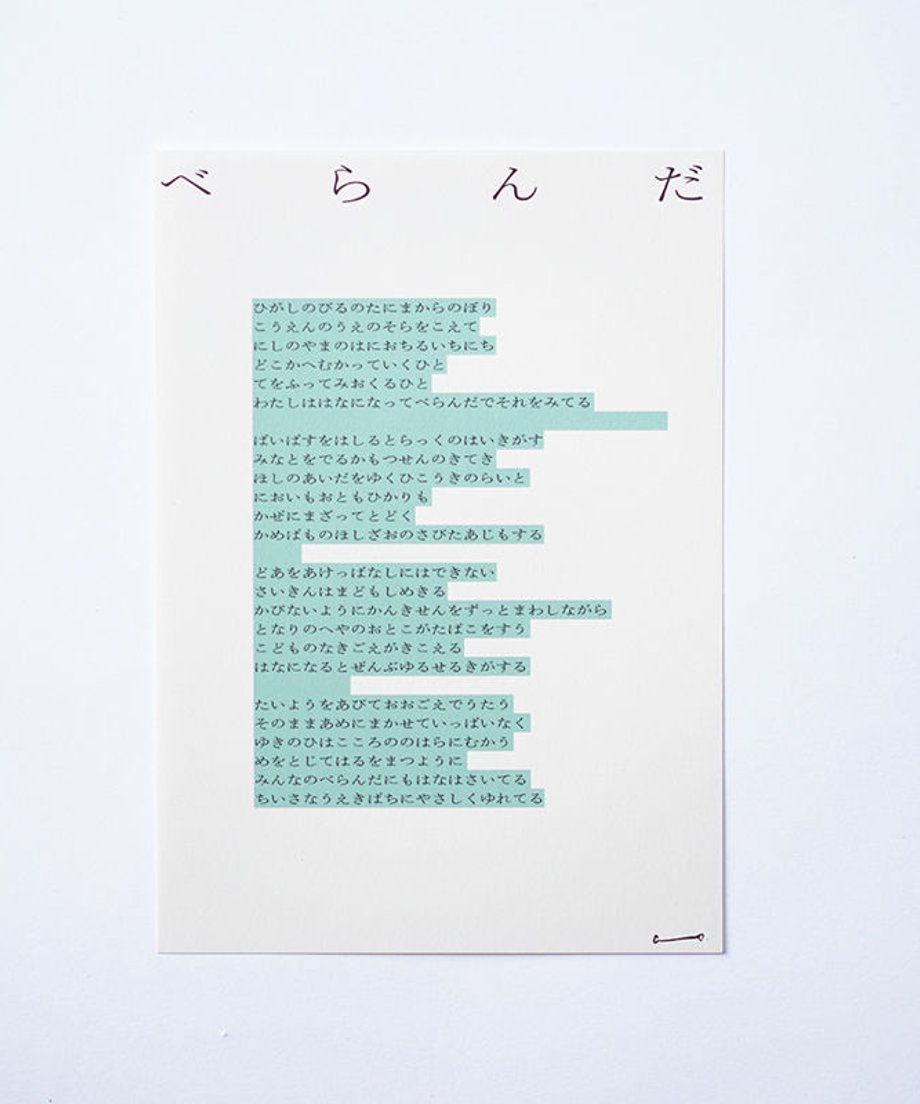 べらんだ
ひがしのびるのたにまからのぼり
こうえんのうえのそらをこえて
にしのやまのはにおちるいちにち
どこかへむかっていくひと
てをふってみおくるひと
わたしははなになってべらんだでそれをみてる
ばいぱすをはしるとらっくのはいきがす
みなとをでるかもつせんのきてき
ほしのあいだをゆくひこうきのらいと
においもおともひかりも
かぜにまざってとどく
かめばものほしざおのさびたあじもする
どあをあけっぱなしにはできない
さいきんはまどもしめきる
かびないようにかんきせんをずっとまわしながら
となりのへやのおとこがたばこをすう
こどものなきごえがきこえる
はなになるとぜんぶゆるせるきがする
たいようをあびておおごえでうたう
そのままあめにまかせていっぱいなく
ゆきのひはこころののはらにむかう
めをとじてはるをまつように
みんなのべらんだにもはなはさいてる
ちいさなうえきばちにやさしくゆれてる